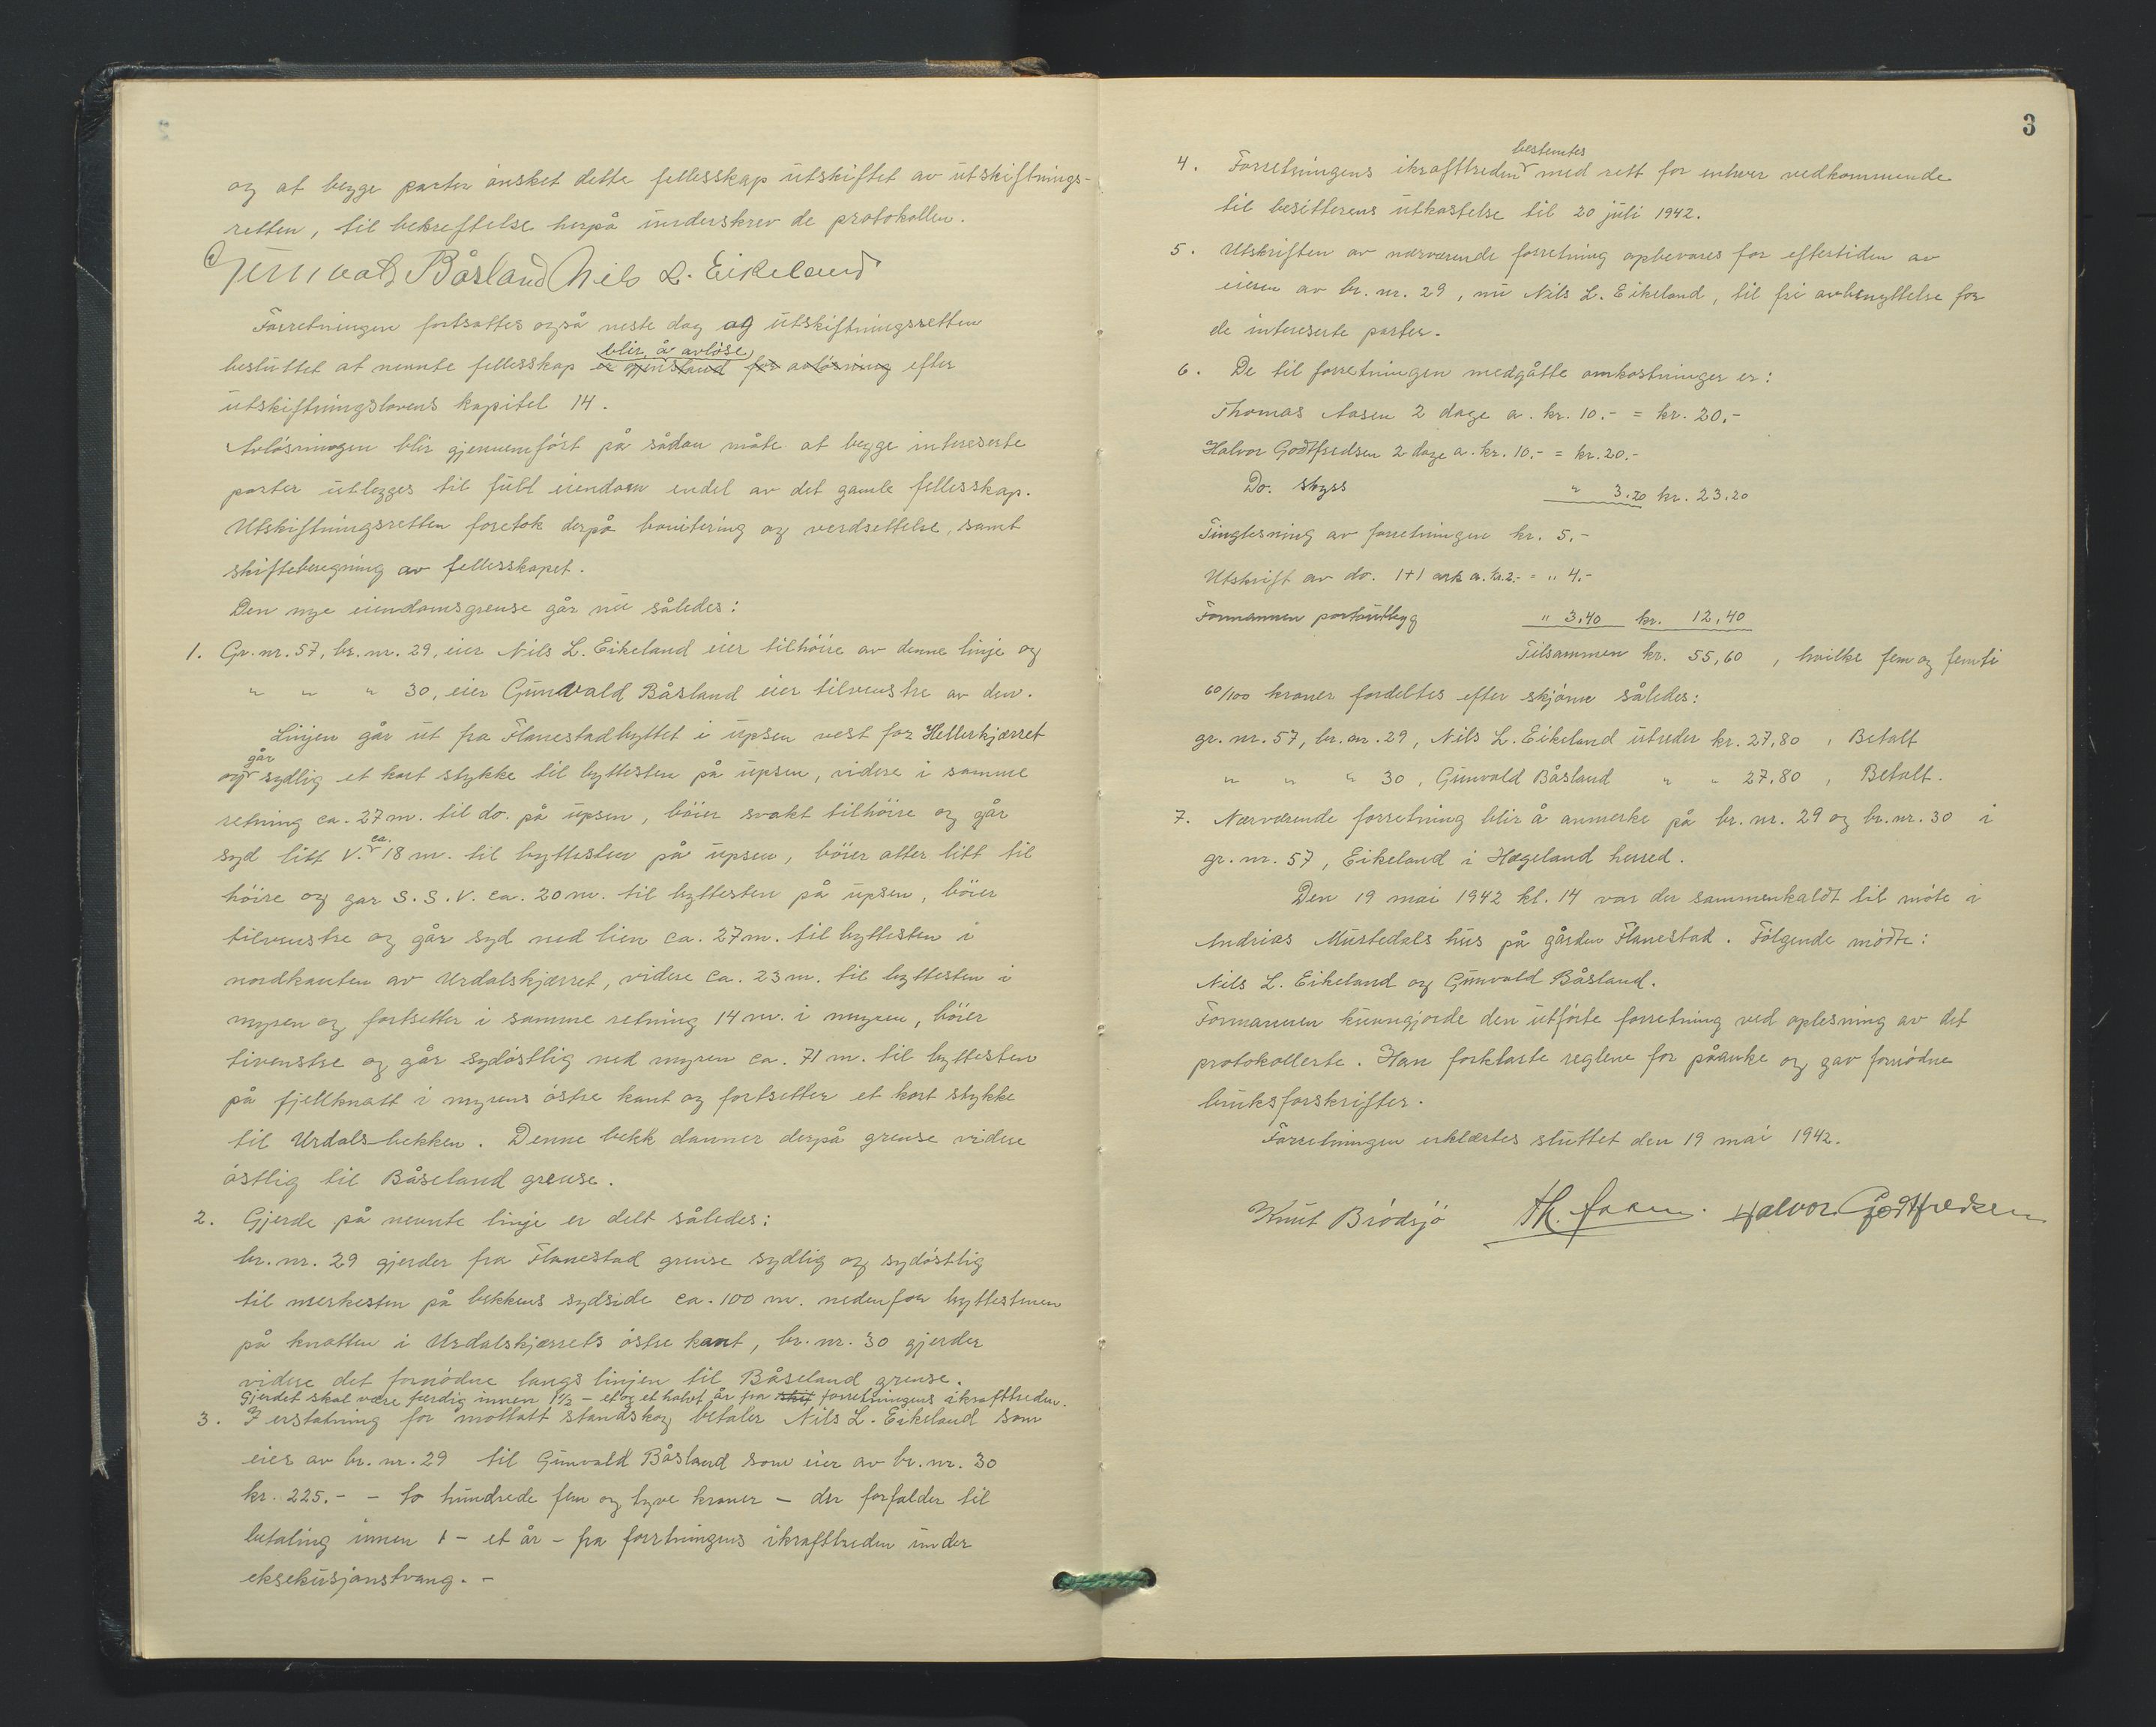 og at begge parter ønsket dette fellesskap utskiftet av utskiftnings-
retten, til bekreftelse herpå underskrev de protokollen.
Gunvald Båsland Nils L. Eikeland
Forretningen fortsattes også neste dag og utskiftningsretten
blir å avløse
besluttet at nevnte fellesskap er gjenstand for avløsning efter
utskiftningslovens kapitel 14.
Avløsningen blir gjennemført på sådan måte at begge interesserte
parter utlegges til fullt eiendom endel av det gamle fellesskap.
Utskiftningsretten foretok derpå bonitering og verdsettelse, samt
skifteberegning av fellesskapet.
Den nye eiendomsgrense går nu således:
1. Gr. nr. 57, br. nr. 29, eier Nils L. Eikeland eier tilhöire av denne linje og
" " " 30, eier Gunvald Båsland eier tilvenstre av den.
Linjen går ut fra Flanestadbyttet i upsen vest for Hellerkjærret
går
og sydlig et kort stykke til byttesten på upsen, videre i samme
retning ca. 27 m. til do. på upsen, böier svakt tilhöire og går
ca.
syd litt V. 18 m. til byttesten på upsen, böier atter litt til
höire og gar S. S. V. ca. 20 m. til byttesten på upsen, böier
tilvenstre og går syd ned lien ca. 27 m. til byttesten i
nordkanten av Urdalskjærret, videre ca. 23 m. til byttesten i
myren og fortsetter i samme retning 14 m. i myren, böier
tivenstre og går sydöstlig ned myren ca. 71 m. til byttesten
på fjellknatt i myrens östre kant og fortsetter et kort stykke
til Urdalsbekken. Denne bekk danner derpå grense videre
östlig til Båseland grense.
2. Gjerde på nevnte linje er delt således:
br. nr. 29 gjerder fra Flanestad grense sydlig og sydöstlig
til merkesten på bekkens sydside ca. 100 m. nedenfor byttestenen
på knatten i Urdalskjærrets östre kant, br. nr. 30 gjerder
videre det fornödne langs linjen til Båseland grense.
Gjerdet skal være ferdig innen 1 1/2 - et og et halvt år fra skif forretningens ikrafttreden.
3. I erstatning for mottatt standskog betaler Nils L. Eikeland som
eier av br. nr. 29 til Gunvald Båsland som eier av br. nr. 30
kr. 225.- - to hundrede fem og tyve kroner - der forfalder til
betaling innen 1 - et år - fra forrtningens ikrafttreden under
eksekusjonstvang. -
3
bestemtes
4. Forretningens ikrafttreden med rett for enhver vedkommende
til besitterens utkastelse til 20 juli 1942.
5. Utskriften av nærværende forretning opbevares for eftertiden av
eieren av br. nr. 29, nu Nils L. Eikeland, til fri avbenyttelse for
de intereserte parter.
6. De til forretningen medgåtte omkostninger er:
Thomas Aasen 2 dage a. kr. 10.- = kr. 20.-
Halvor Godtfredsen 2 dage a. kr. 10.- = kr. 20.-
Do. skyss " 3.20 kr. 23.20
Tinglesning av forretningen kr. 5.-
Utskrift av do. 1+1 ark a. kr. 2.- = " 4.-
Formannen portoutlegg " 3.40 kr. 12,40
Tilsammen kr. 55,60, hvilke fem og femti
60/100 kroner fordeltes efter skjönn således:
gr. nr. 57, br. nr. 29, Nils L. Eikeland utreder kr. 27,80, Betalt
" " " 30, Gunvald Båsland " " 27.80, Betalt.
7. Nærværende forretning blir å anmerke på br. nr. 29 og br. nr. 30 i
gr. nr. 57, Eikeland i Hægeland herred.
Den 19 mai 1942 kl. 14 var der sammenkaldt til möte i
Andrias Mustedals hus på gården Flanestad. Fölgende mödte:
Nils L. Eikeland og Gunvald Båsland.
Formannen kunngjorde den utförte forretning ved oplesning av det
protokollerte. Han forklarte reglene for påanke og gav fornödne
bruksforskrifter.
Forretningen erklærtes sluttet den 19 mai 1942.
Knut Brödsjö Th. Aasen. Halvor Godtfredsen